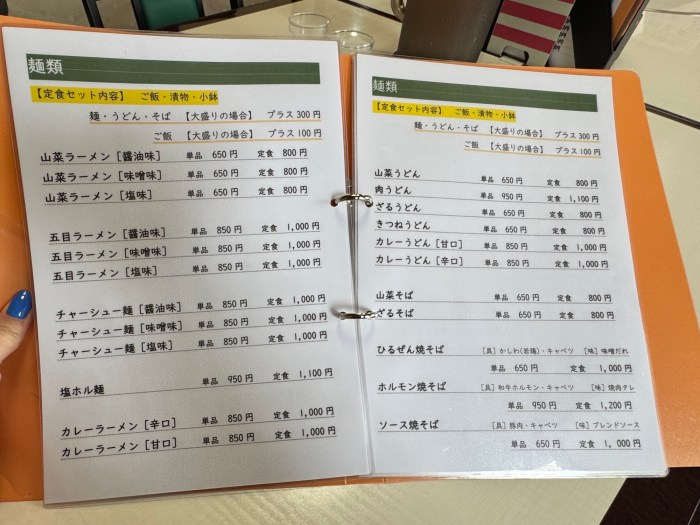 麺類
【定食セット内容】 ご飯・漬物・小鉢
麺・うどん・そば 【大盛りの場合】 プラス300円
ご飯 【大盛りの場合】 プラス100円
山菜ラーメン［醤油味］ 単品 650円 定食 800円
山菜ラーメン［味噌味］ 単品 650円 定食 800円
山菜ラーメン［塩味］ 単品 650円 定食 800円
五目ラーメン［醤油味］ 単品 850円 定食 1,000円
五目ラーメン［味噌味］ 単品 850円 定食 1,000円
五目ラーメン［塩味］ 単品 850円 定食 1,000円
チャーシュー麺［醤油味］ 単品 850円 定食 1,000円
チャーシュー麺［味噌味］ 単品 850円 定食 1,000円
チャーシュー麺［塩味］ 単品 850円 定食 1,000円
塩ホル麺 単品 950円 定食 1,100円
カレーラーメン［辛口］ 単品 850円 定食 1,000円
カレーラーメン［甘口］ 単品 850円 定食 1,000円
麺類
【定食セット内容】 ご飯・漬物・小鉢
麺・うどん・そば 【大盛りの場合】 プラス300円
ご飯 【大盛りの場合】 プラス100円
山菜うどん 単品 650円 定食 800円
肉うどん 単品 950円 定食 1,100円
ざるうどん 単品 650円 定食 800円
きつねうどん 単品 650円 定食 800円
カレーうどん［甘口］ 単品 850円 定食 1,000円
カレーうどん［辛口］ 単品 850円 定食 1,000円
山菜そば 単品 650円 定食 800円
ざるそば 単品 650円 定食 800円
ひるぜん焼そば ［具］かしわ(若鶏)・キャベツ ［味］味噌だれ
単品 650円 定食 1,000円
ホルモン焼そば ［具］和牛ホルモン・キャベツ ［味］焼肉タレ
単品 950円 定食 1,200円
ソース焼そば ［具］豚肉・キャベツ ［味］ブレンドソース
単品 650円 定食 1,000円